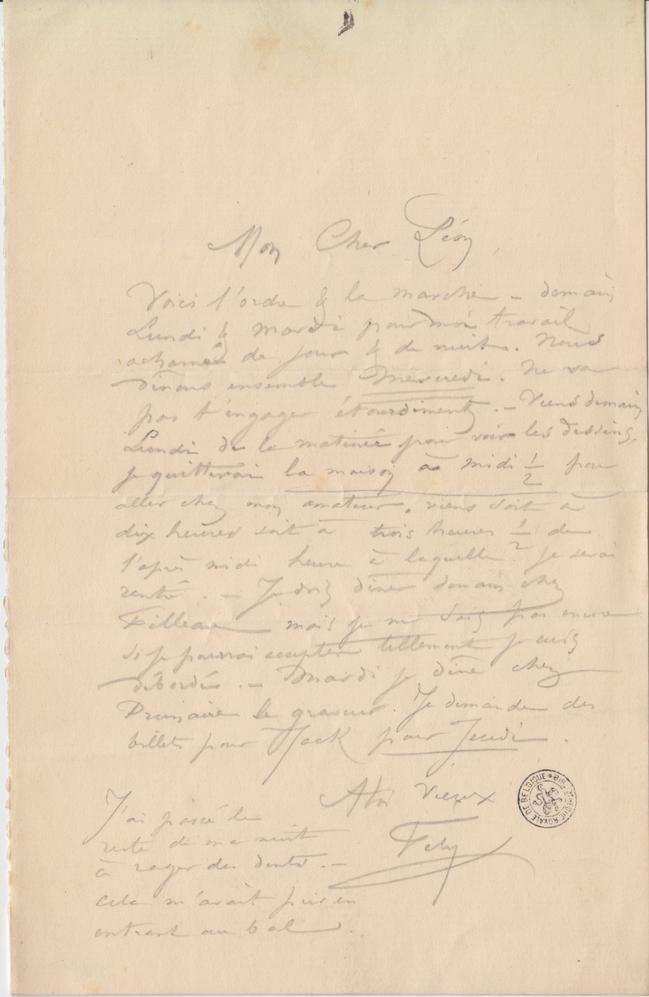 Mon Cher Léon,
Voici l'ordre & la marche — demain
Lundi & mardi pour moi travail
acharné de jour & de nuit. Nous
dinons ensemble Mercredi. Ne va
pas t'engager étourdiment. — Viens demain
Lundi de la matinée pour voir les dessins,
je quitterai la maison à midi ½ pour
aller chez mon amateur, viens soit à
dix heures soit à trois heures ½ de
l'après midi heure à laquelle je serai
rentré. — Je dois diner demain chez
Filleau mais je ne sais pas encore
si je pourrai accepter tellement je suis
débordé. — Mardi je dine chez
le graveur. Je demande des
billets pour Jack pour Jeudi.
Vieux
Fély
J'ai passé le
reste de ma nuit
à rager des dents. —
cela m'avait pris en
entrant au bal.
BIBLIOTHÈQUE ROYALE DE BELGIQUE